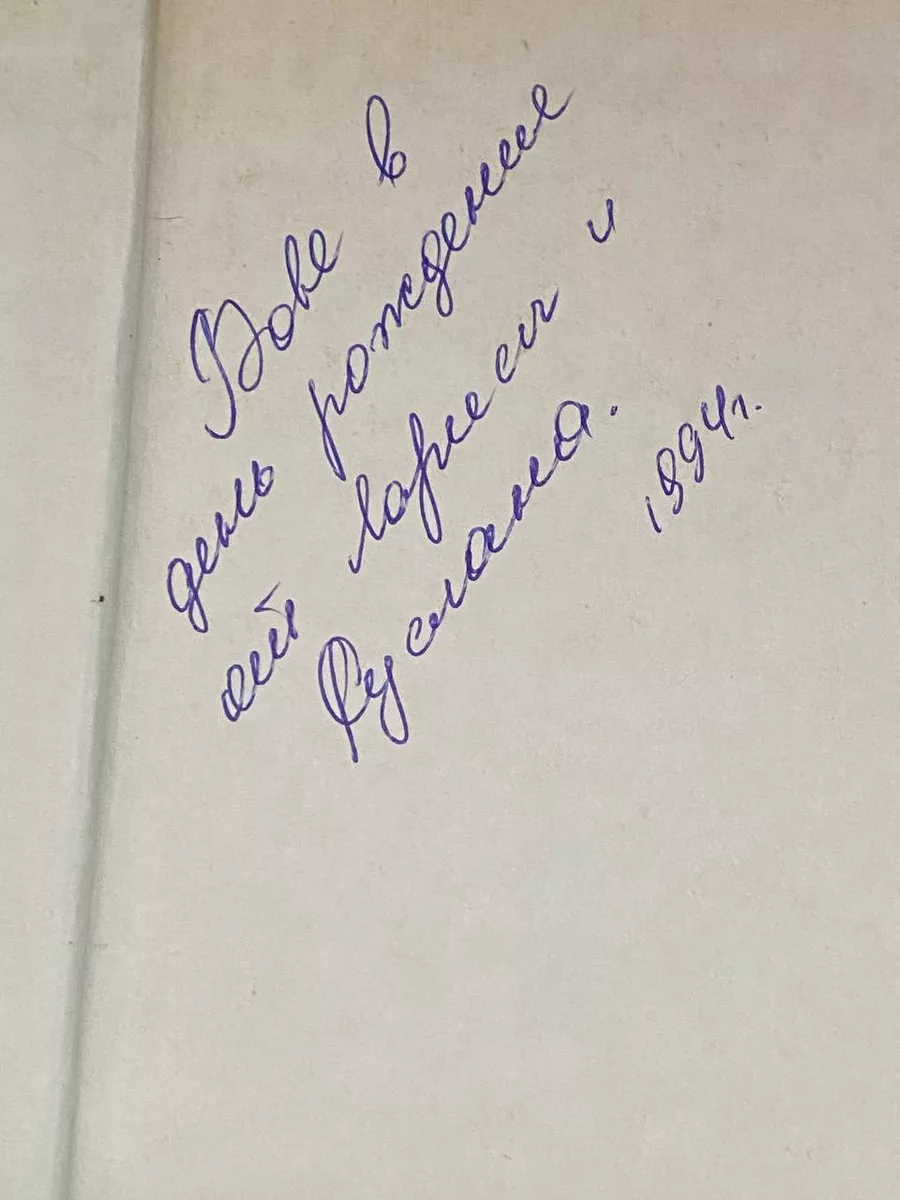 Вове в
день рождения
от Ларисы и
Руслана.
1994г.